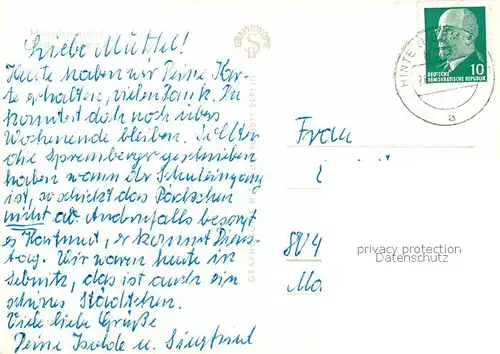 Liebe Muttel!
Heute haben wir Deine Kar-
te erhalten, vielen Dank. Du
kommst doch noch übers
Wochenende bleiben. Sollten
die Spremberger geschrieben
haben wann der Schuleingang
ist, so schickt das Päckchen
nicht ab. Andernfalls besorgt
es Hartmut, er kommt Diens-
tag. Wir waren heute in
Sebnitz, das ist auch ein
schönes Städtchen.
Viele liebe Grüße
Deine Isolde u. Siegfried
GRAPHOKOPIE
HINTE
a
10
DEUTSCHE
DEMOKRATISCHE REPUBLIK
Frau
804
Ma
privacy protection
Datenschutz